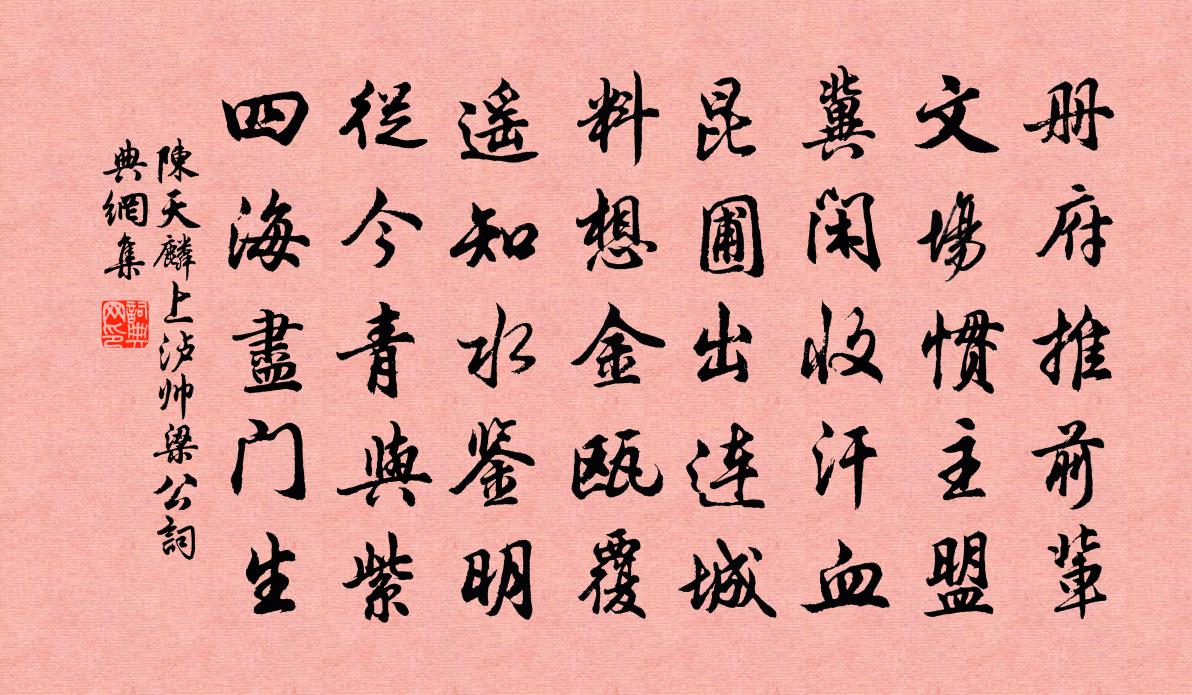 册府推前辈
文場慣主盟
冀闲收汗血
昆圃出连城
料想金瓯覆
遥知水鉴明
從今青與紫
四海盡门生
陳天麟上泸帅梁公詞
典網集
詞典网印